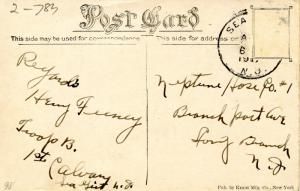 2-783
Post Card
This side may be used for correspondence
This side for address
SEA
A
6
191
N.J.
Regards
Henry Feeney
Troop B.
1st Calvary
Sea Girt N.J.
Neptune Hose Co. #1
Branchport Ave
Long Branch
N.J.
Pub. by Kraus Mfg. Co., New York